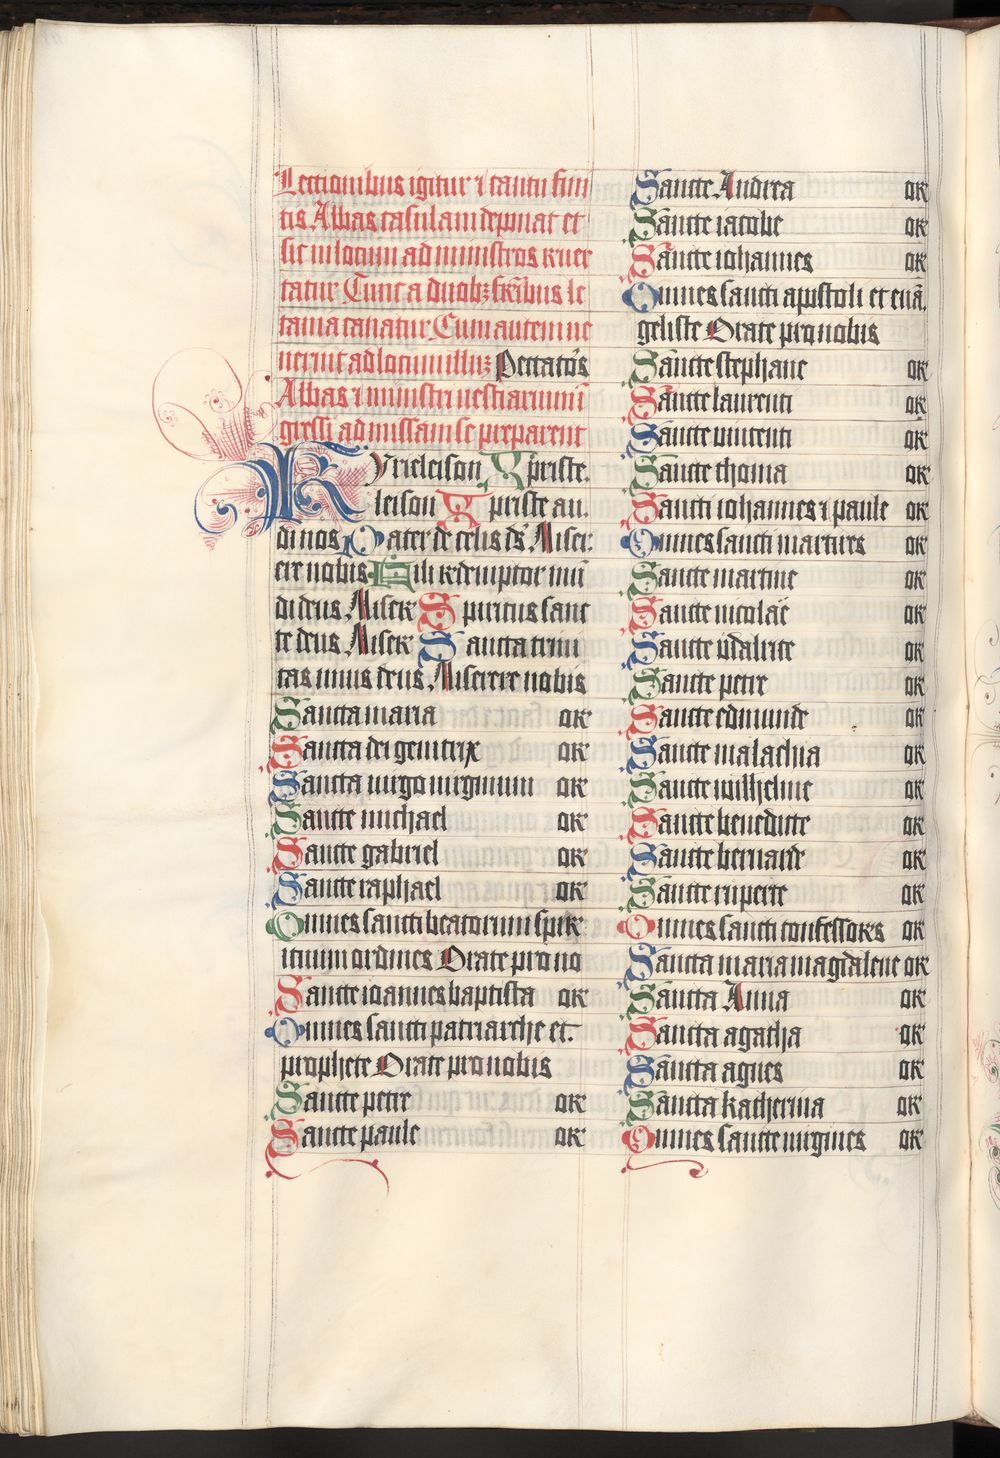 Lectionibus igitur ⁊ cantu fini
tis Abbas casulam deponat et
sic in locum ad ministros reuer
tatur Tunc a duobꝫ fr̄ibus le
tania cantatur Cum autem ue
nerint ad locum illuꝫ Peccatōs
Abbas ⁊ ministri uestiarium ī
gressi ad missam se preparent
Kyrieleison Xpriste.
leison Xpriste au.
di nos Pater de celis dꝰ Miser.
ere nobis Fili redemptor mū
di deus Miser Spiritus sanc
te deus Miser Sancta trini
tas unus deus Miserere nobis
Sancta maria or
Sancta dei genitrix or
Sancta uirgo uirginum or
Sancte michael or
Sancte gabriel or
Sancte raphael or
Omnes sancti beatorum spir
ituum ordines Orate pro no
Sancte ioannes baptista or
Omnes sancti patriarche et
prophete Orate pro nobis
Sancte petre or
Sancte paule or
Sancte Andrea or
Sancte iacobe or
Sancte iohannes or
Omnes sancti apostoli et euā.
geliste Orate pro nobis
Sancte stephane or
Sancte laurenti or
Sancte uincenti or
Sancte thoma or
Sancti iohannes ⁊ paule or
Omnes sancti martires or
Sancte martine or
Sancte nicolae or
Sancte ůdalrice or
Sancte petre or
Sancte edmunde or
Sancte malachia or
Sancte wilhelme or
Sancte benedicte or
Sancte bernarde or
Sancte ruperte or
Omnes sancti confessores or
Sancta maria magdalene or
Sancta Anna or
Sancta agatha or
Sancta agnes or
Sancta katherina or
Omnes sancte uirgines or